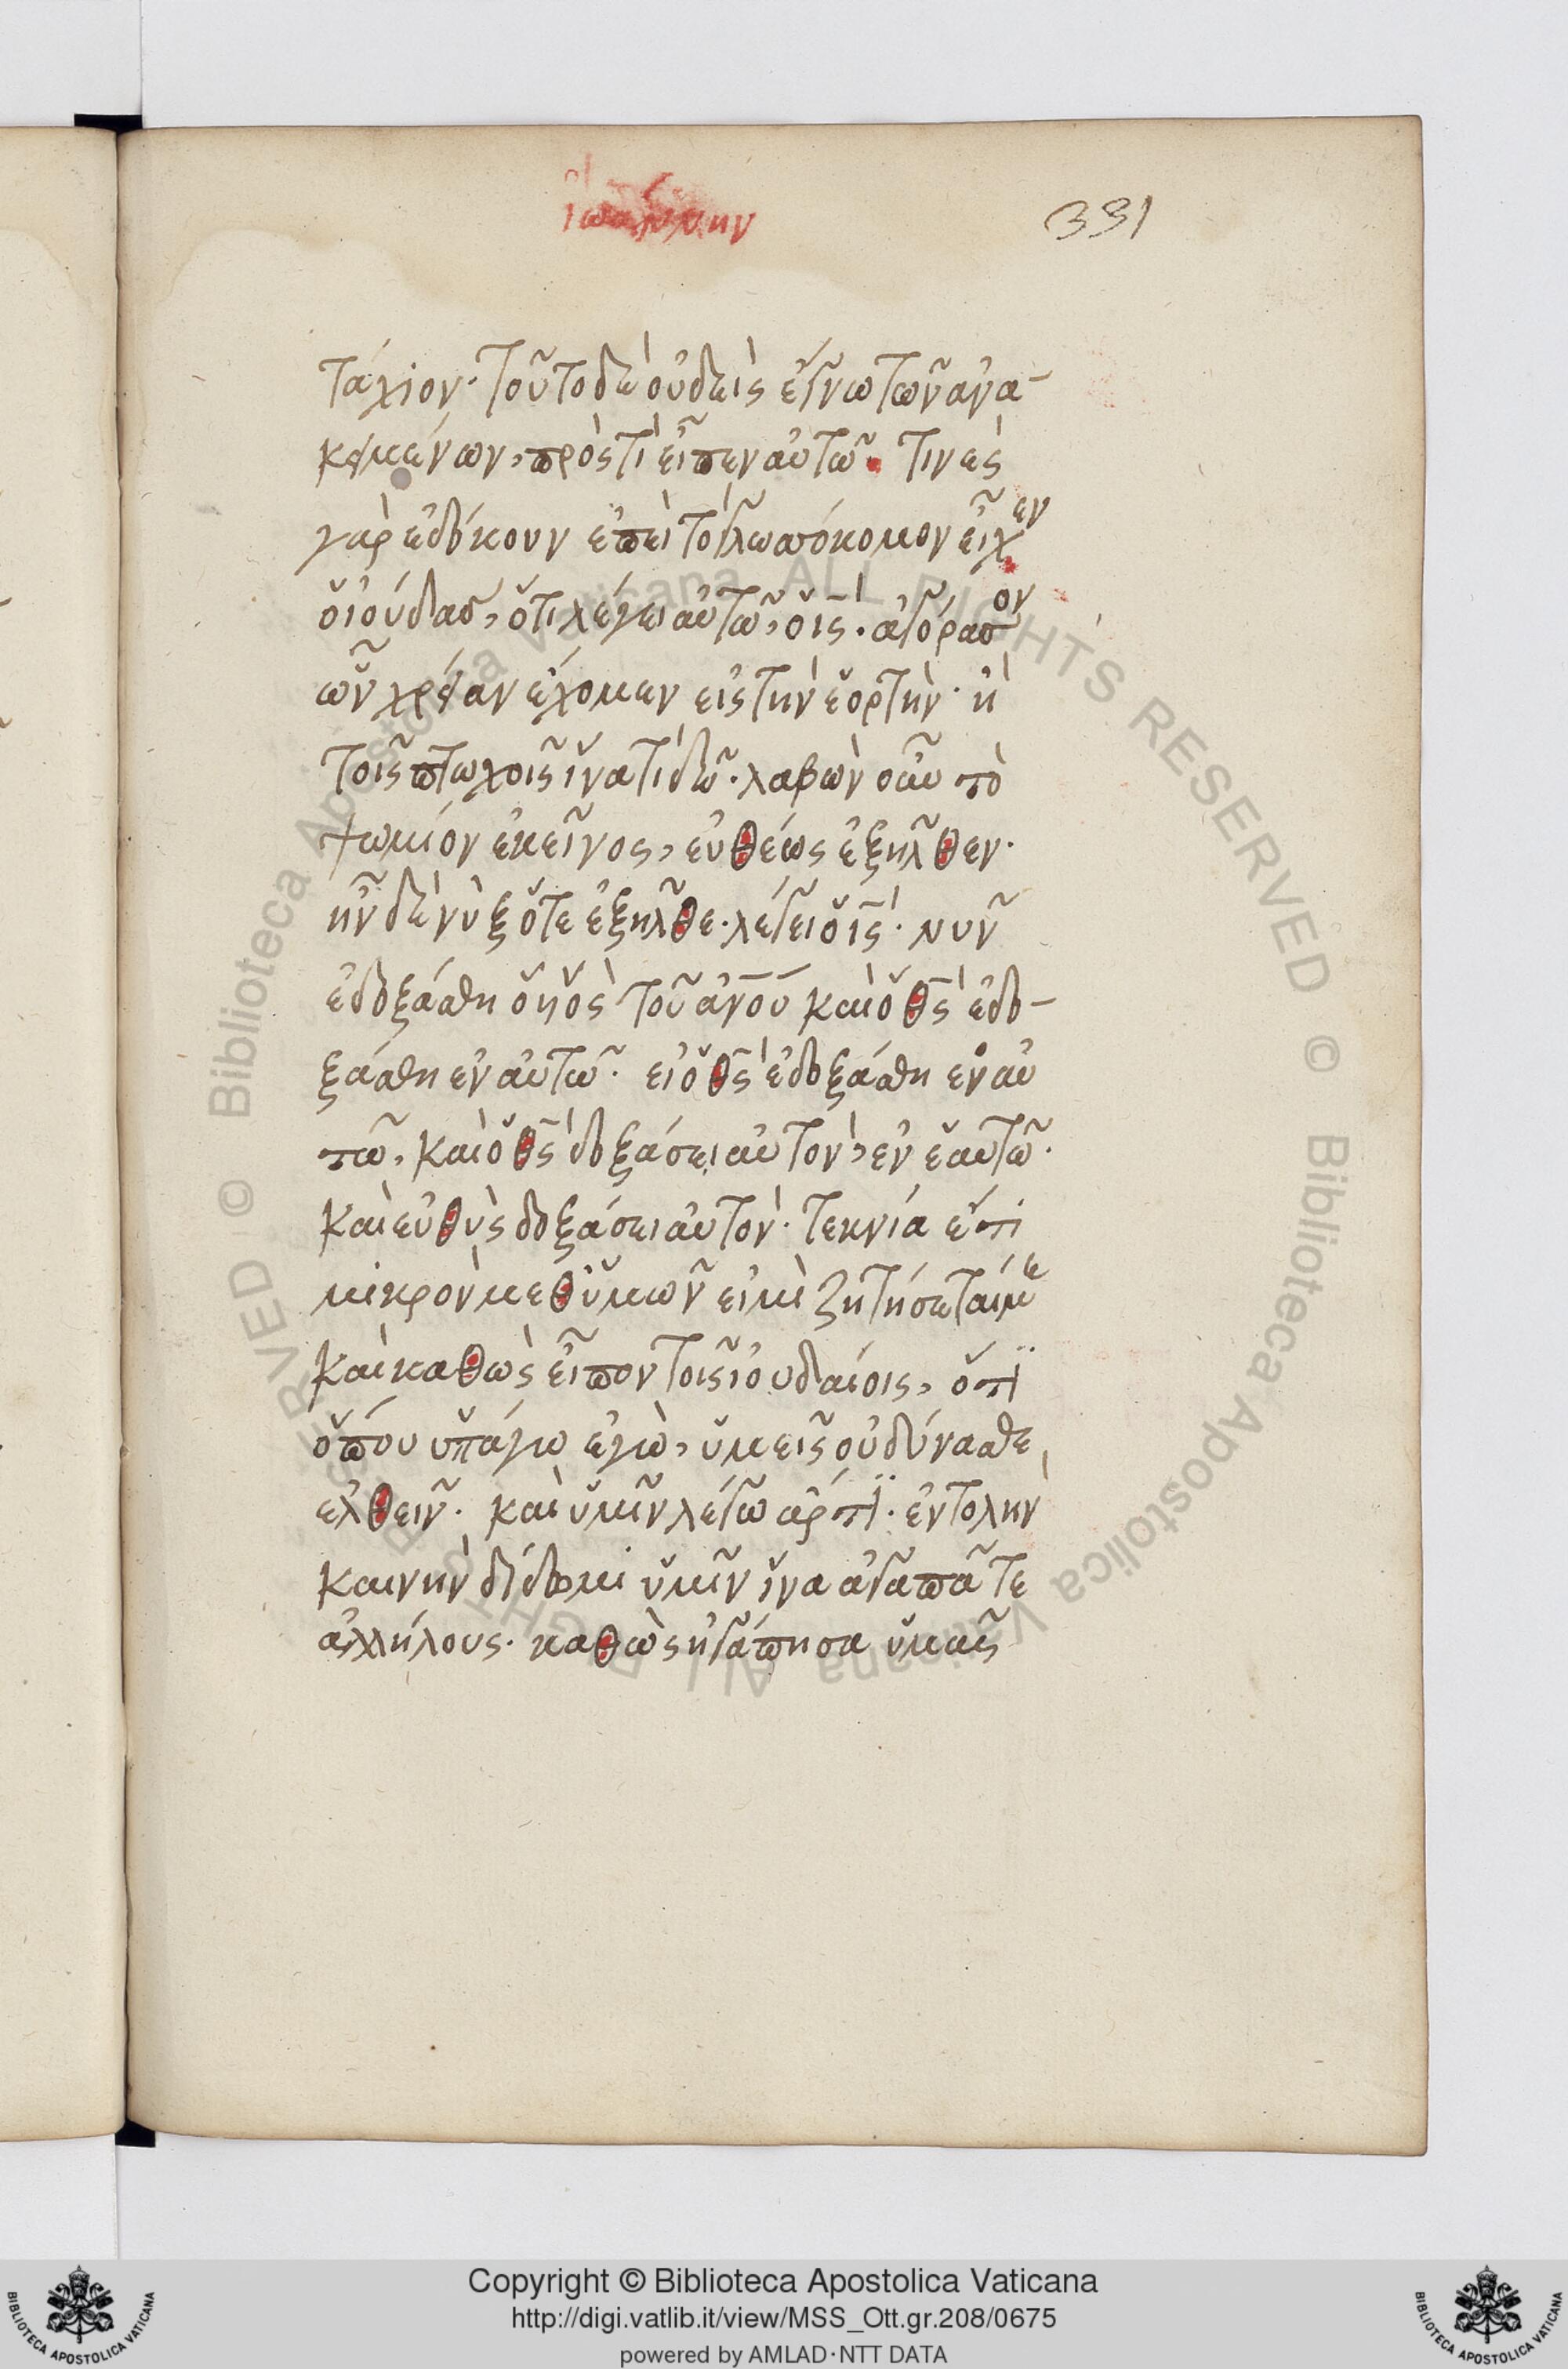 ἰωάννην
331
τάχιον· τοῦτο δὲ οὐδεὶς ἔγνω τῶν ἀνα-
κειμένων, πρὸς τί εἶπεν αὐτῶ· τινὲς
γὰρ ἐδόκουν ἐπεὶ τὸ γλωσσόκομον εἶχεν
ὁ ἰούδας, ὅτι λέγει αὐτῶ, ὁ ις̅· ἀγόρασον
ὧν χρείαν ἔχομεν εἰς τὴν ἑορτὴν· ἢ
τοῖς πτωχοῖς ἵνα τὶ δῶ· λαβὼν οὖν τὸ
ψωμίον ἐκεῖνος, εὐθέως ἐξῆλθεν·
ἦν δὲ νὺξ ὅτε ἐξῆλθε· λέγει ὁ ις̅· νῦν
ἐδοξάσθη ὁ υἱὸς τοῦ ἀνου καὶ ὁ θς̅ ἐδο-
ξάσθη ἐν αὐτῶ· εἰ ὁ θς̅ ἐδοξάσθη ἐν αὐ
τῶ, καὶ ὁ θς̅ δοξάσει αὐτὸν, ἐν ἑαυτῶ·
καὶ εὐθὺς δοξάσει αὐτὸν· τεκνία ἔτι
μικρὸν μεθ ὑμῶν εἰμὶ ζητήσεταί με
καὶ καθὼς εἶπον τοῖς ἰουδαίοις, ὅτϊ
ὅπου ὑπάγω ἐγὼ, ὑμεῖς οὐ δύνασθε
ἐλθεῖν· καὶ ὑμῖν λέγω ἄρτϊ· ἐντολὴν
καινὴν δίδωμι ὑμῖν ἵνα ἀγαπᾶτε
ἀλλήλους· καθὼς ἠγάπησα ὑμᾶς
Copyright © Biblioteca Apostolica Vaticana
http://digi.vatlib.it/view/MSS_Ott.gr.208/0675
powered by AMLAD·NTT DATA